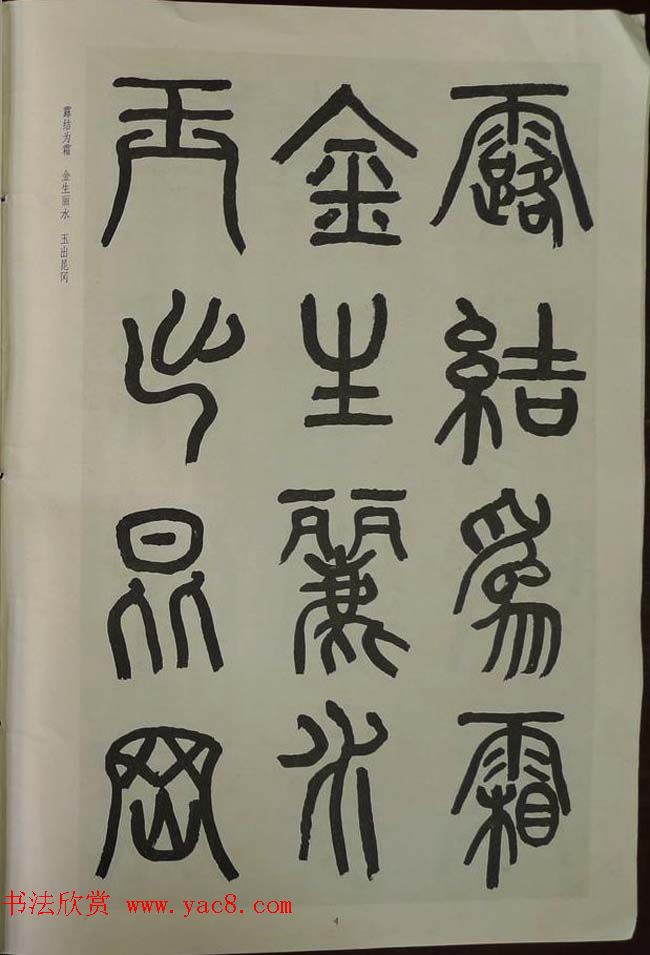 露結爲霜
金生麗水
玉出昆岡
露结为霜 金生丽水 玉出昆冈
书法欣赏 www.yac8.com
4